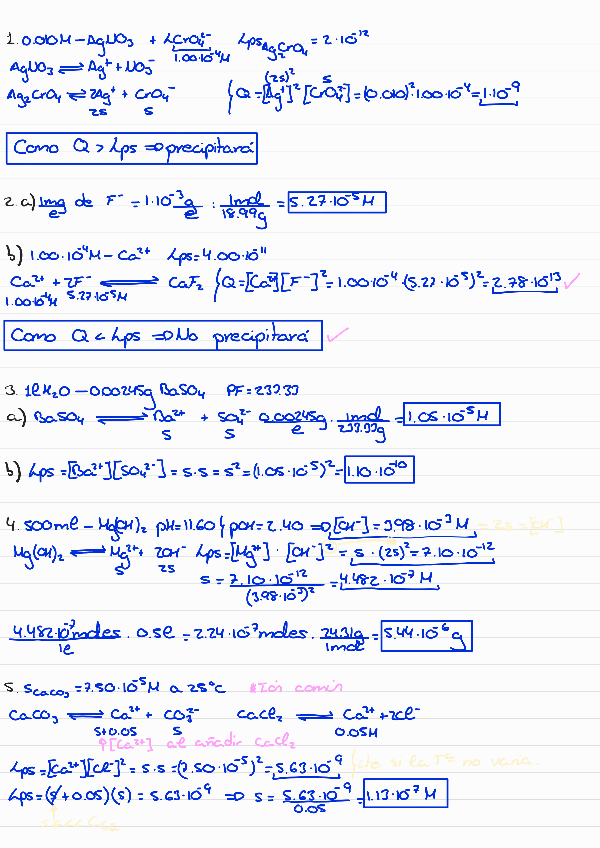 1. 0.010M - AgNO₃ + K₂CrO₄²⁻ LpsAg₂CrO₄ = 2·10⁻¹²
1.00·10⁻⁴M
AgNO₃ ⇌ Ag⁺ + NO₃⁻
(2s)² s
Ag₂CrO₄ ⇌ 2Ag⁺ + CrO₄⁻ { Q = [Ag⁺]² [CrO₄²⁻] = (0.010)² 1.00·10⁻⁴ = 1·10⁻⁹
2s s
Como Q > Lps ⇒ precipitará
2. a) 1mg/ℓ de F⁻ = 1·10⁻³g/ℓ · 1mol/18.99g = 5.27·10⁻⁵M
b) 1.00·10⁻⁴M - Ca²⁺ Lps = 4.00·10⁻¹¹
Ca²⁺ + 2F⁻ ⇌ CaF₂ { Q = [Ca²⁺][F⁻]² = 1.00·10⁻⁴·(5.27·10⁻⁵)² = 2.78·10⁻¹³ ✓
1.00·10⁻⁴M 5.27·10⁻⁵M
Como Q < Lps ⇒ No precipitará ✓
3. 1ℓ H₂O - 0.00245g BaSO₄ PF = 233.33
a) BaSO₄ ⇌ Ba²⁺ + SO₄²⁻ 0.00245g/ℓ · 1mol/233.33g = 1.05·10⁻⁵M
s s
b) Lps = [Ba²⁺][SO₄²⁻] = s·s = s² = (1.05·10⁻⁵)² = 1.10·10⁻¹⁰
4. 500mℓ - Mg(OH)₂ pH = 11.60 { pOH = 2.40 ⇒ [OH⁻] = 3.98·10⁻³M = 2s = [OH⁻]
Mg(OH)₂ ⇌ Mg²⁺ + 2OH⁻ Lps = [Mg²⁺]·[OH⁻]² = s·(2s)² = 7.10·10⁻¹²
s 2s
s = 7.10·10⁻¹²/(3.98·10⁻³)² = 4.482·10⁻⁷M
4.482·10⁻⁷moles/1ℓ · 0.5ℓ = 2.24·10⁻⁷moles · 24.31g/1mol = 5.44·10⁻⁶g
5. sCaCO₃ = 7.50·10⁻⁵M a 25°C *Ión común
CaCO₃ ⇌ Ca²⁺ + CO₃²⁻ CaCl₂ ⇌ Ca²⁺ + 2Cl⁻
s+0.05 s 0.05M
↑[Ca²⁺] al añadir CaCl₂
Lps = [Ca²⁺][Cl⁻]² = s·s = (7.50·10⁻⁵)² = 5.63·10⁻⁹ { cto si la Tª no varía.
Lps = (s + 0.05)(s) = 5.63·10⁻⁹ ⇒ s = 5.63·10⁻⁹/0.05 = 1.13·10⁻⁷M